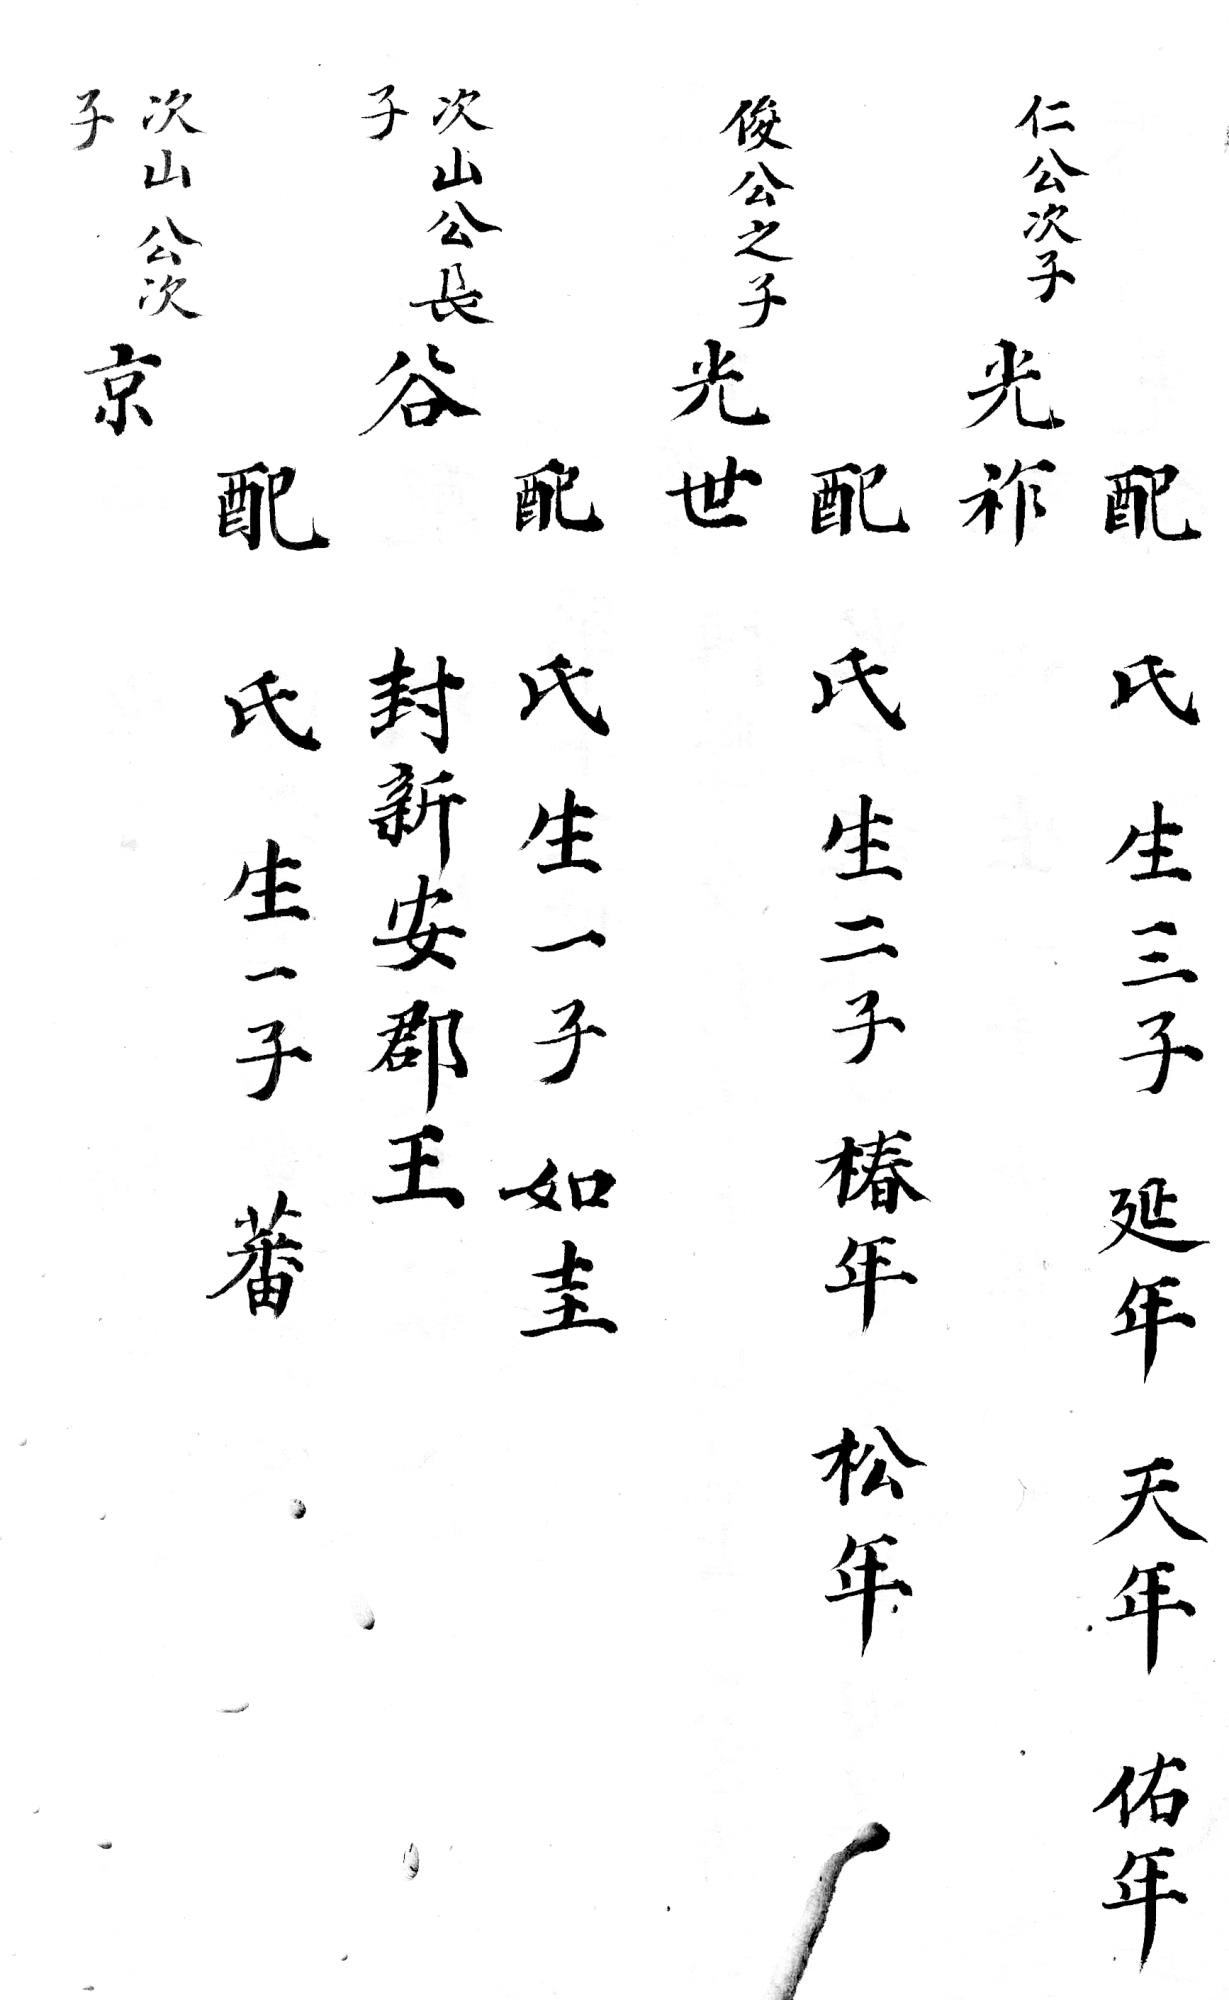 配 氏 生三子 延年 天年 佑年
仁公次子
光祚
配 氏 生二子 椿年 松年
俊公之子
光世
配 氏 生一子 如圭
次山公長
子
谷 封新安郡王
配 氏 生一子 蕃
次山公次
子
京